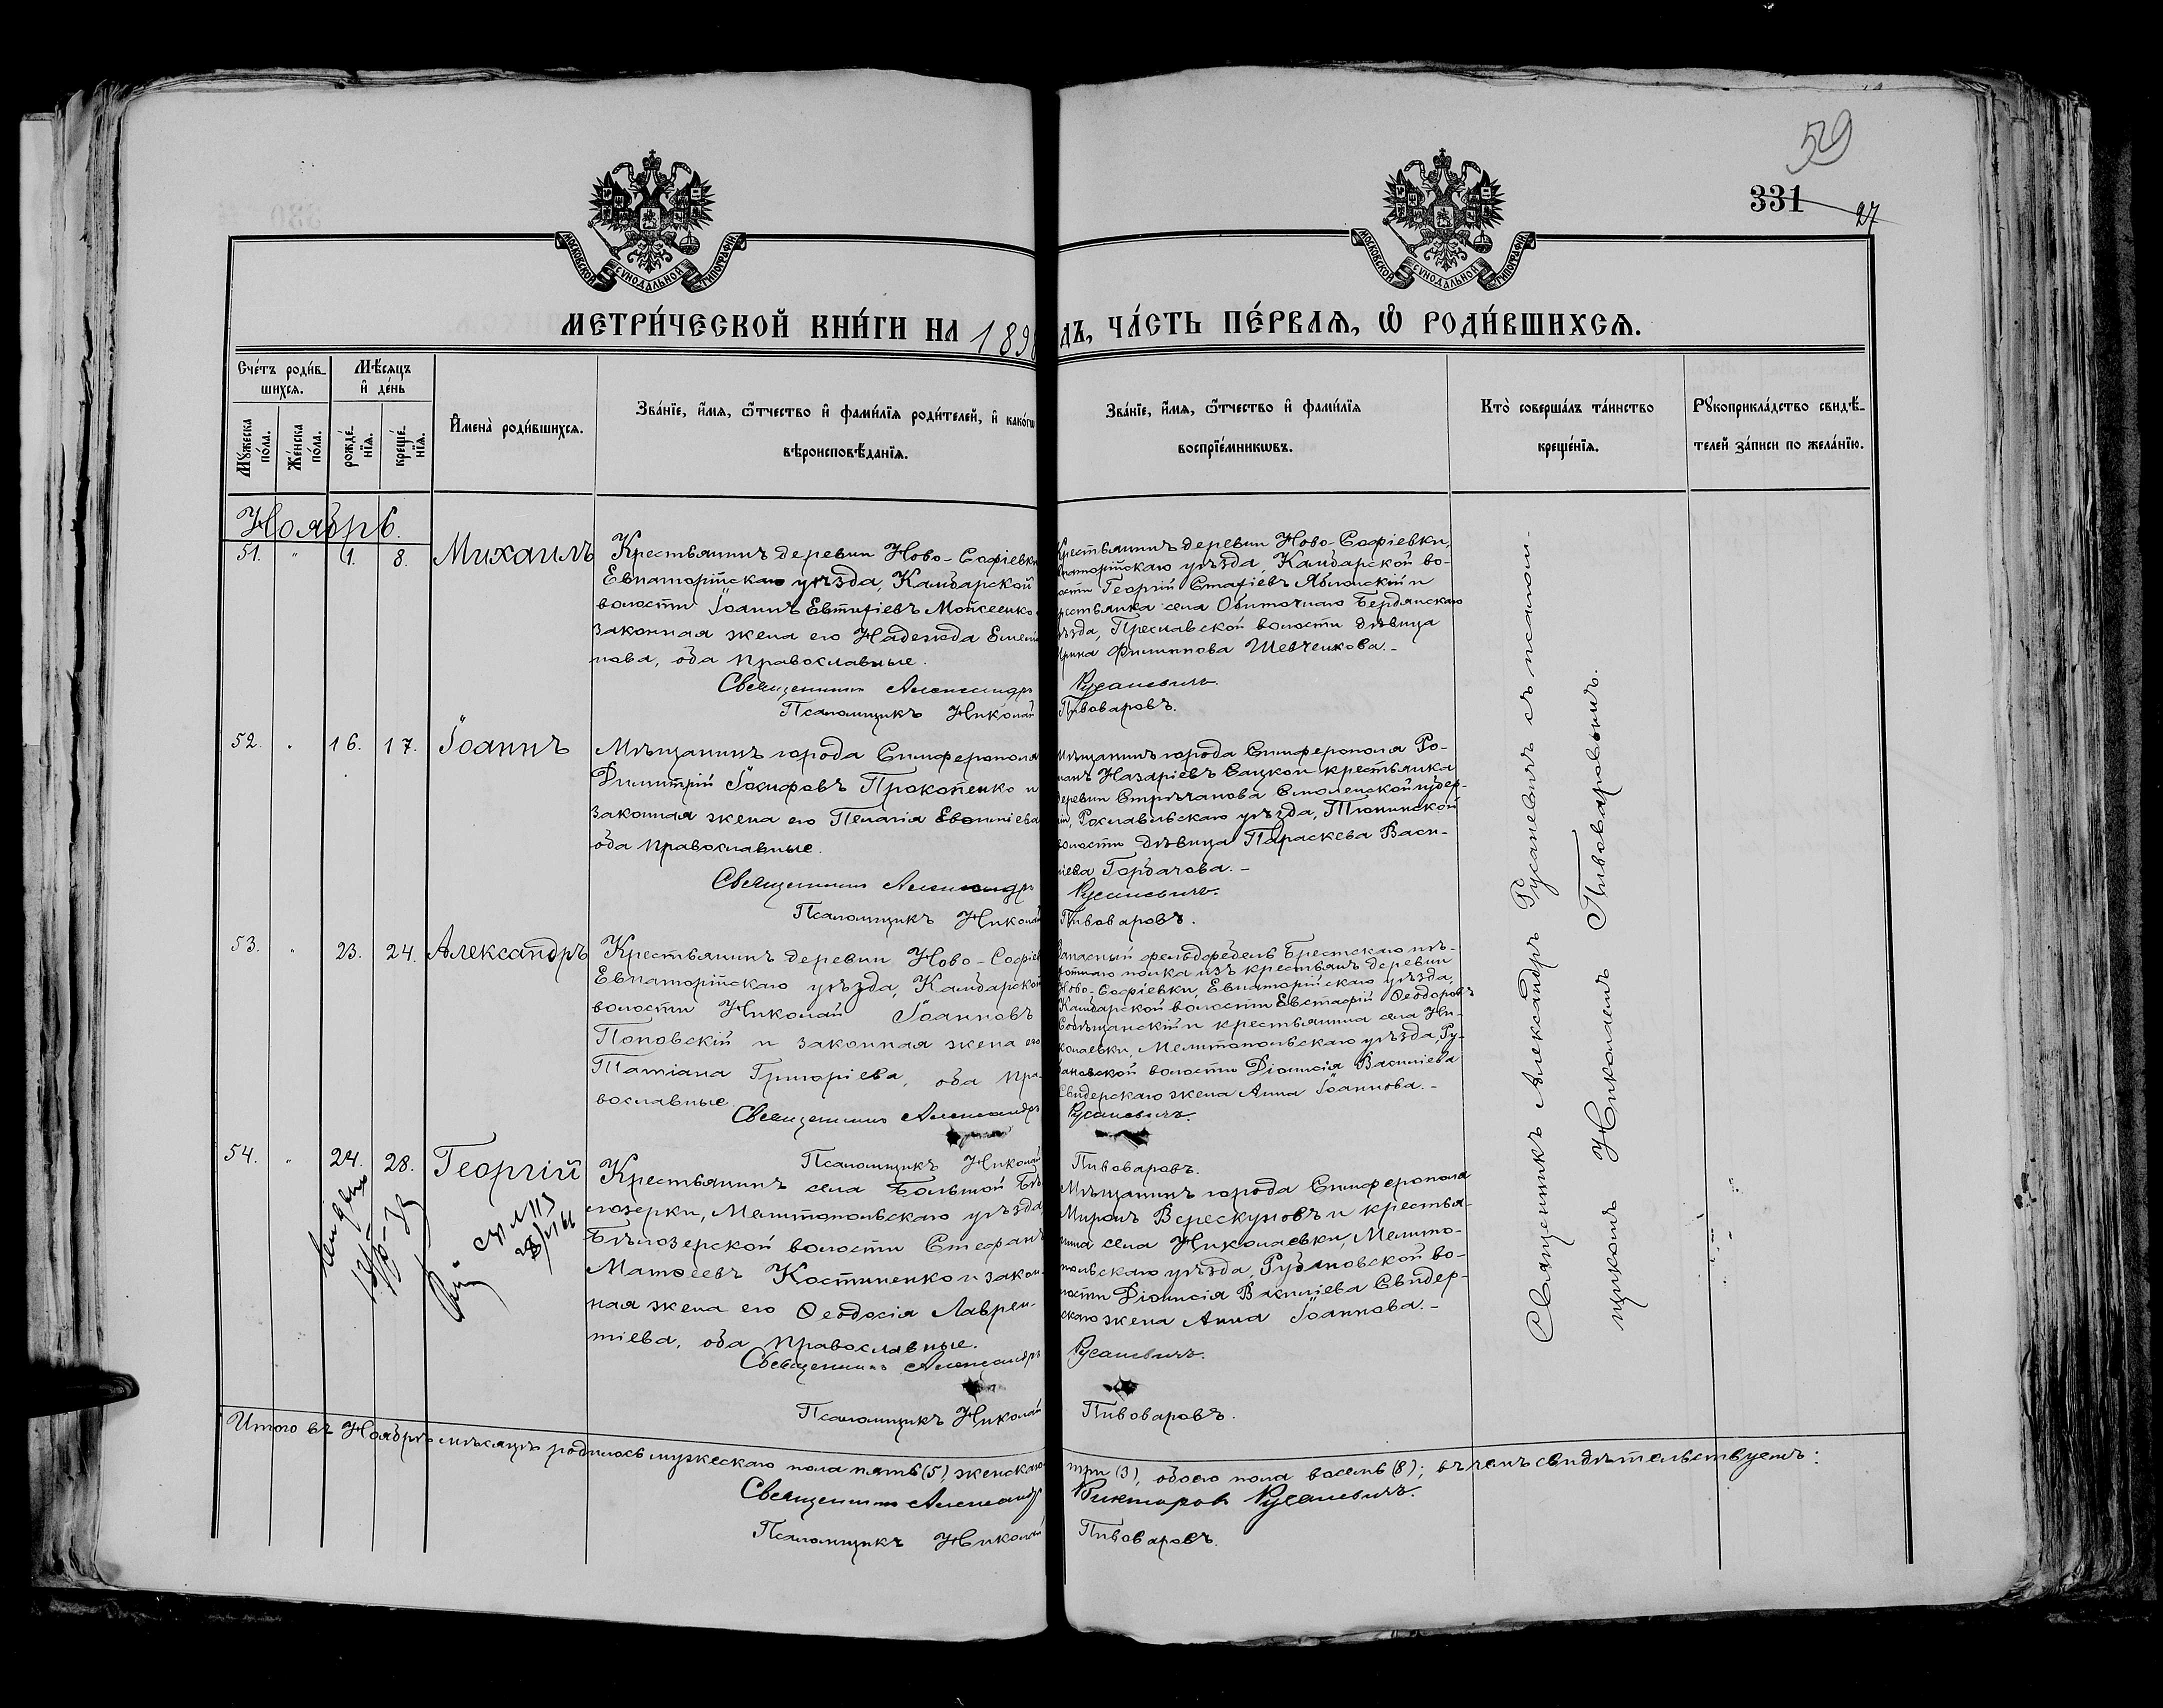 59
331
27
МОСКОВСКОЙ СѴНОДАЛЬНОЙ ТИПОГРАФІИ
МОСКОВСКОЙ СѴНОДАЛЬНОЙ ТИПОГРАФІИ
МЕТРИ́ЧЕСКОЙ КНИ́ГИ НА 189
ДЪ, ЧА́СТЬ ПЕ́РВАѦ, Ѽ РОДИ́ВШИХСѦ.
Сче́тъ роди́в-
шихсѧ.
Мꙋ́жеска
по́ла.
Же́нска
по́ла.
Мѣ́сѧцъ
и҆ де́нь
рожде́-
нїѧ.
креще́-
нїѧ.
И҆мена̀ роди́вшихсѧ.
Зва́нїе, и҆́мѧ, ѻ҆́тчество и҆ фами́лїѧ роди́телей, и҆ како́гѡ
вѣроисповѣ́данїѧ.
Зва́нїе, и҆́мѧ, ѻ҆́тчество и҆ фами́лїѧ
воспрїе́мникѡвъ.
Кто̀ соверша́лъ та́инство
креще́нїѧ.
Рꙋкоприкла́дство свидѣ́-
телей за́писи по жела́нїю.
Ноябрь.
51. " 1. 8. Михаилъ
Крестьянинъ деревни Ново-Софіевки
Евпаторійскаго уѣзда, Камбарской
волости Іоаннъ Евтихіевъ Мойсеенко
законная жена его Надежда Емель
нова, оба православные.
Священникъ Александръ
Псаломщикъ Николай
Крестьянинъ деревни Ново-Софіевки,
Евпаторійскаго уѣзда, Камбарской во-
лости Георгій Евстафіевъ Яблонскій и
крестьянка села Обиточнаго Бердянскаго
уѣзда, Преславской волости дѣвица
Ирина Филиппова Шевченкова.-
Русаневичъ.
Пивоваровъ.
52. " 16. 17. Іоаннъ
Мѣщанинъ города Симферополя
Димитрій Іосифовъ Прокопенко и
законная жена его Пелагія Евоиміева
оба православные.
Священникъ Александръ
Псаломщикъ Николай
Мѣщанинъ города Симферополя Ро-
манъ Назаріевъ Сацкой крестьянка
деревни Стрѣчанова Смоленской губер-
ніи, Рославльскаго уѣзда, Тюнинской
волости дѣвица Параскева Васи-
ліева Горбачова.-
Русаневичъ.
Пивоваровъ.
53. " 23. 24. Александръ
Крестьянинъ деревни Ново-Софіев
Евпаторійскаго уѣзда, Камбарской
волости Николай Іоанновъ
Поповскій и законная жена его
Татіана Григоріева, оба пра-
вославные
Священникъ Александръ
Псаломщикъ Николай
Запасный фельдфебель Брестскаго пѣ-
хотнаго полка изъ крестьянъ деревни
Ново-Софіевки, Евпаторійскаго уѣзда,
Камбарской волости Евстафій Ѳеодоровъ
крестьянина села Ни-
колаевки, Мелитопольскаго уѣзда, Ру-
бановской волости Діонисія Василіева
Свидерскаго жена Анна Іоаннова.-
Русаневичъ.
Пивоваровъ.
54. " 24. 28. Георгій
Крестьянинъ села Большой Бѣ
лозерки, Мелитопольскаго уѣзда,
Бѣлозерской волости Стефанъ
Матѳеевъ Костиненко и закон-
ная жена его Ѳеодосія Лаврен-
тіева, оба православные.
Священникъ Александръ
Псаломщикъ Николай
Мѣщанинъ города Симферополя
Миронъ Верескуновъ и крестья-
нина села Николаевки, Мелито-
польскаго уѣзда, Рубановской во-
лости Діонисія Василіева Свидер-
скаго жена Анна Іоаннова.-
Русаневичъ.
Пивоваровъ.
Священникъ Александръ Русаневичъ съ псалом-
щикомъ Николаемъ Пивоваровымъ.
Итого въ Ноябрѣ мѣсяцѣ родилось мужескаго пола пять (5), женскаго
три (3), обоего пола восемь (8); въ чемъ свидѣтельствуемъ:
Священникъ Александръ
Викторовъ Русаневичъ.
Псаломщикъ Николай
Пивоваровъ.